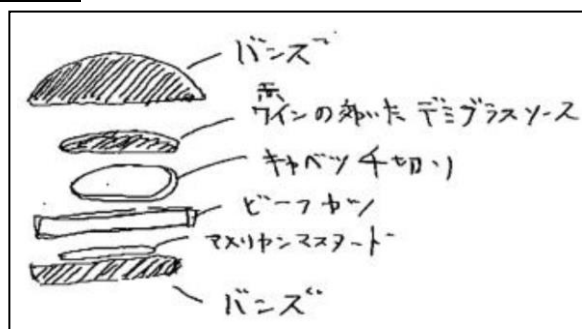 バンズ
赤ワインの効いたデミグラスソース
キャベツ千切り
ビーフカツ
アメリカンマスタード
バンズ